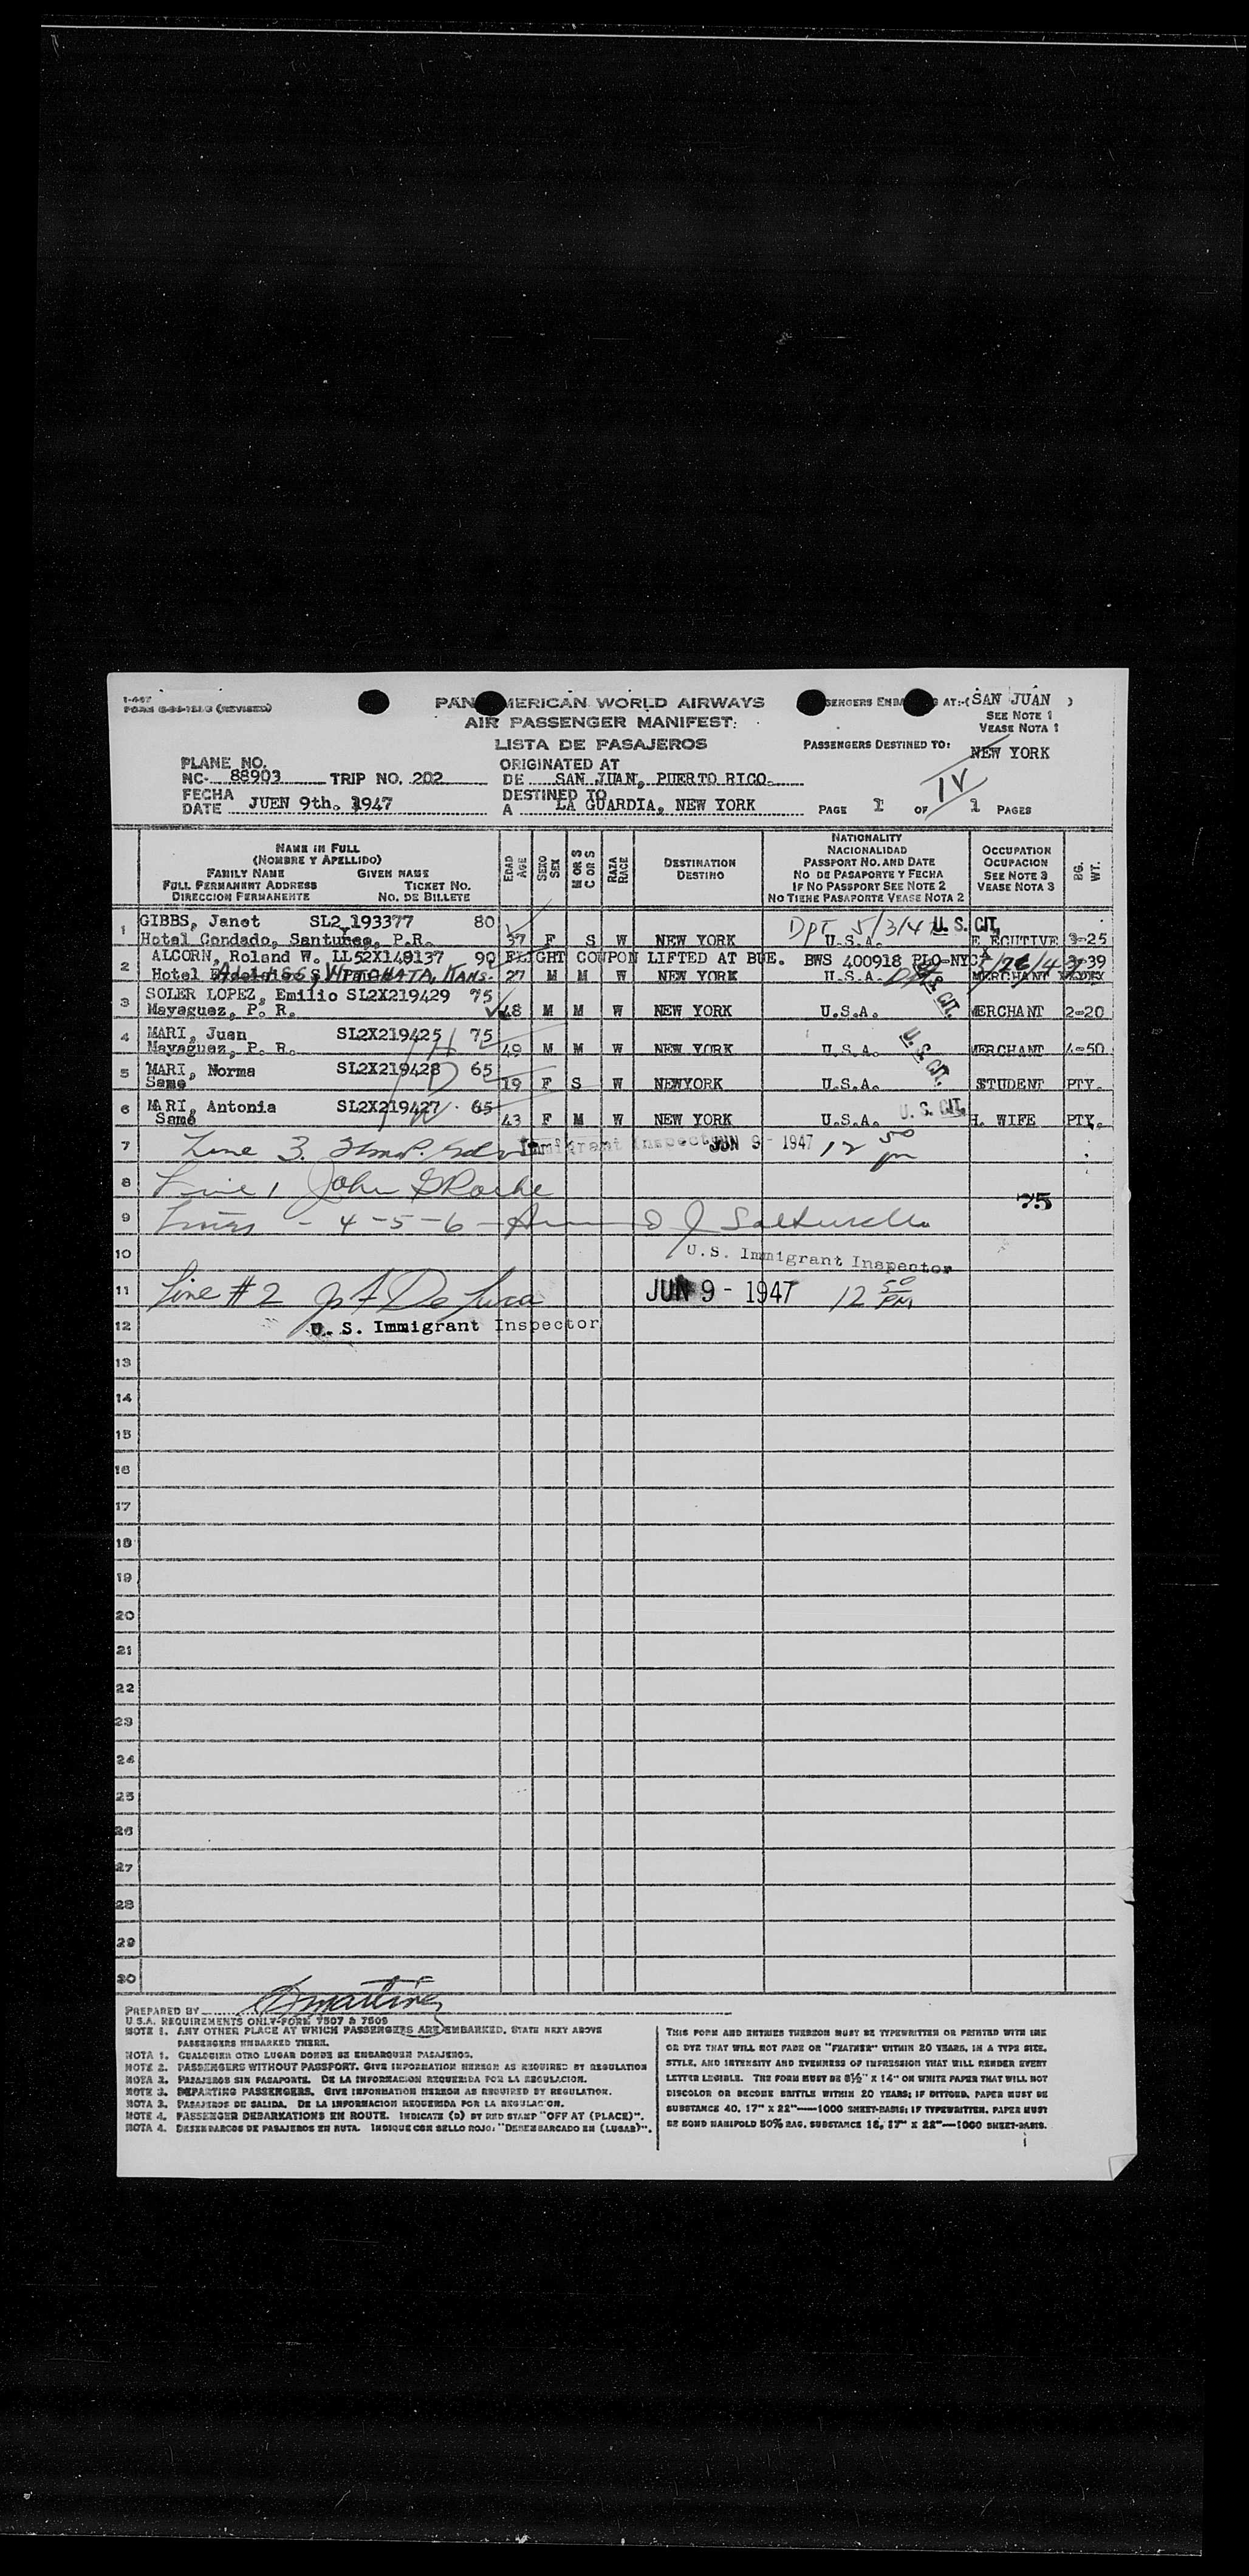 I-447
PAN AMERICAN WORLD AIRWAYS
AIR PASSENGER MANIFEST:
LISTA DE PASAJEROS
PASSENGERS EMBARKING AT:-( SAN JUAN )
SEE NOTE 1
VEASE NOTA 1
PASSENGERS DESTINED TO: NEW YORK
PLANE NO.
NC- 88903 TRIP NO. 202
ORIGINATED AT
DE SAN JUAN, PUERTO RICO
FECHA
DATE JUEN 9th. 1947
DESTINED TO
A LA GUARDIA, NEW YORK
IV
PAGE 1 OF 1 PAGES
NAME IN FULL
(NOMBRE Y APELLIDO)
FAMILY NAME GIVEN NAME
FULL PERMANENT ADDRESS TICKET NO.
DIRECCION PERMANENTE NO. DE BILLETE
EDAD AGE
SEXO SEX
M OR S C OR S
RAZA RACE
DESTINATION
DESTINO
NATIONALITY
NACIONALIDAD
PASSPORT NO. AND DATE
NO DE PASAPORTE Y FECHA
IF NO PASSPORT SEE NOTE 2
NO TIENE PASAPORTE VEASE NOTA 2
OCCUPATION
OCUPACION
SEE NOTE 3
VEASE NOTA 3
BG. WT.
1 GIBBS, Janet SL2 193377 80 Dpt 5/3/47 U. S. CIT.
Hotel Condado, Santurce, P.R. 37 F S W NEW YORK U.S.A. E ECUTIVE 3-25
2 ALCORN, Roland W. LL52X149137 90 FLIGHT COUPON LIFTED AT BUE. BWS 400918 PLO-NYC
Hotel 27 M M W NEW YORK U.S.A. MERCHANT
WITCHATA, KANS.
3 SOLER LOPEZ, Emilio SL2X219429 75 U. S. CIT.
Mayaguez, P. R. 48 M M W NEW YORK U.S.A. MERCHANT 2-20
4 MARI, Juan SL2X219425 75
Mayaguez, P. R. 49 M M W NEW YORK U.S.A. MERCHANT 4-50
5 MARI, Norma SL2X219428 65 U. S. CIT.
Same 19 F S W NEWYORK U.S.A. STUDENT PTY.
6 MARI, Antonia SL2X219427 65
Same 43 F M W NEW YORK U.S.A. U. S. CIT. H. WIFE PTY.
7 Line 3 Immigrant Inspector JUN 9 - 1947 12 50 pm
8 Line 1 John
75
9 Lines - 4-5-6 -
10 U.S. Immigrant Inspector
11 Line #2 De Luca JUN 9 - 1947 12 50 PM
12 U. S. Immigrant Inspector
13
14
15
16
17
18
19
20
21
22
23
24
25
26
27
28
29
30
PREPARED BY Martinez
U.S.A. REQUIREMENTS ONLY-FORM 7507 & 7509
NOTE 1. ANY OTHER PLACE AT WHICH PASSENGERS ARE EMBARKED, STATE NEXT ABOVE
PASSENGERS EMBARKED THERE.
NOTA 1. CUALQUIER OTRO LUGAR DONDE SE EMBARQUEN PASAJEROS.
NOTE 2. PASSENGERS WITHOUT PASSPORT. GIVE INFORMATION HEREON AS REQUIRED BY REGULATION
NOTA 2. PASAJEROS SIN PASAPORTE. DE LA INFORMACION REQUERIDA POR LA REGULACION.
NOTE 3. DEPARTING PASSENGERS. GIVE INFORMATION HEREON AS REQUIRED BY REGULATION.
NOTA 3. PASAJEROS DE SALIDA. DE LA INFORMACION REQUERIDA POR LA REGULACION.
NOTE 4. PASSENGER DEBARKATIONS EN ROUTE. INDICATE (D) BY RED STAMP "OFF AT (PLACE)".
NOTA 4. DESEMBARCOS DE PASAJEROS EN RUTA. INDIQUE CON SELLO ROJO: "DESEMBARCADO EN (LUGAR)".
THIS FORM AND ENTRIES THEREON MUST BE TYPEWRITTEN OR PRINTED WITH INK
OR DYE THAT WILL NOT FADE OR "FEATHER" WITHIN 20 YEARS, IN A TYPE SIZE,
STYLE, AND INTENSITY AND EVENNESS OF IMPRESSION THAT WILL RENDER EVERY
LETTER LEGIBLE. THE FORM MUST BE 8½" X 14" ON WHITE PAPER THAT WILL NOT
DISCOLOR OR BECOME BRITTLE WITHIN 20 YEARS; IF DITTOED, PAPER MUST BE
SUBSTANCE 40, 17" X 22"—1000 SHEET-BASIS; IF TYPEWRITTEN, PAPER MUST
BE BOND MANIFOLD 50% RAG, SUBSTANCE 16, 17" X 22"—1000 SHEET-BASIS.